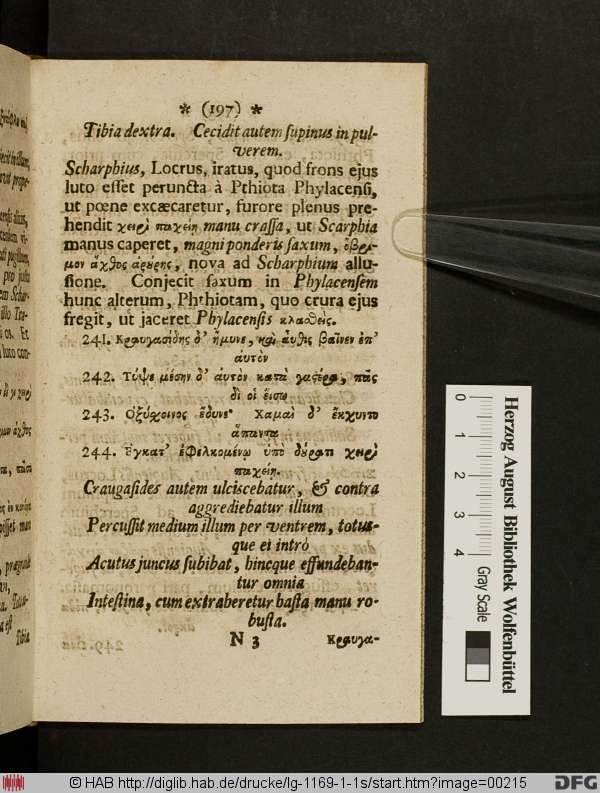 * (197) *
Tibia dextra. Cecidit autem supinus in pul-
verem.
Scharphius, Locrus, iratus, quod frons ejus
luto esset peruncta à Pthiota Phylacensi,
ut pœne excæcaretur, furore plenus pre-
hendit χειρὶ παχείῃ manu crassa, ut Scarphia
manus caperet, magni ponderis saxum, ὄβρι-
μον ἄχθος ἀρύρης, nova ad Scharphium allu-
sione. Conjecit saxum in Phylacensem
hunc alterum, Phthiotam, quo crura ejus
fregit, ut jaceret Phylacensis κλαθεὶς.
241. Κραυγασίδης δ' ἤμυνε, καὶ ἀυθις βαῖνεν ἐπ'
ἀυτὸν
242. Τύψε μέσην δ' ἀυτὸν κατὰ γαςέρα, πᾶς
δὲ οἱ ἔισω
243. Οξύχοινος ἔδυνε· Χαμαὶ δ' ἔκχυντο
ἅπαντα
244. Εγκατ' ἐφελκομένῳ ὑπὸ δύρατι χειρὶ
παχείῃ.
Craugasides autem ulciscebatur, & contra
aggrediebatur illum
Percussit medium illum per ventrem, totus-
que ei intrò
Acutus juncus subibat, hincque effundeban-
tur omnia
Intestina, cum extraheretur hasta manu ro-
busta.
N 3 Κραυγα-
Tibia
0
1
2
3
4
Herzog August Bibliothek Wolfenbüttel
Gray Scale
© HAB http://diglib.hab.de/drucke/lg-1169-1-1s/start.htm?image=00215
DFG